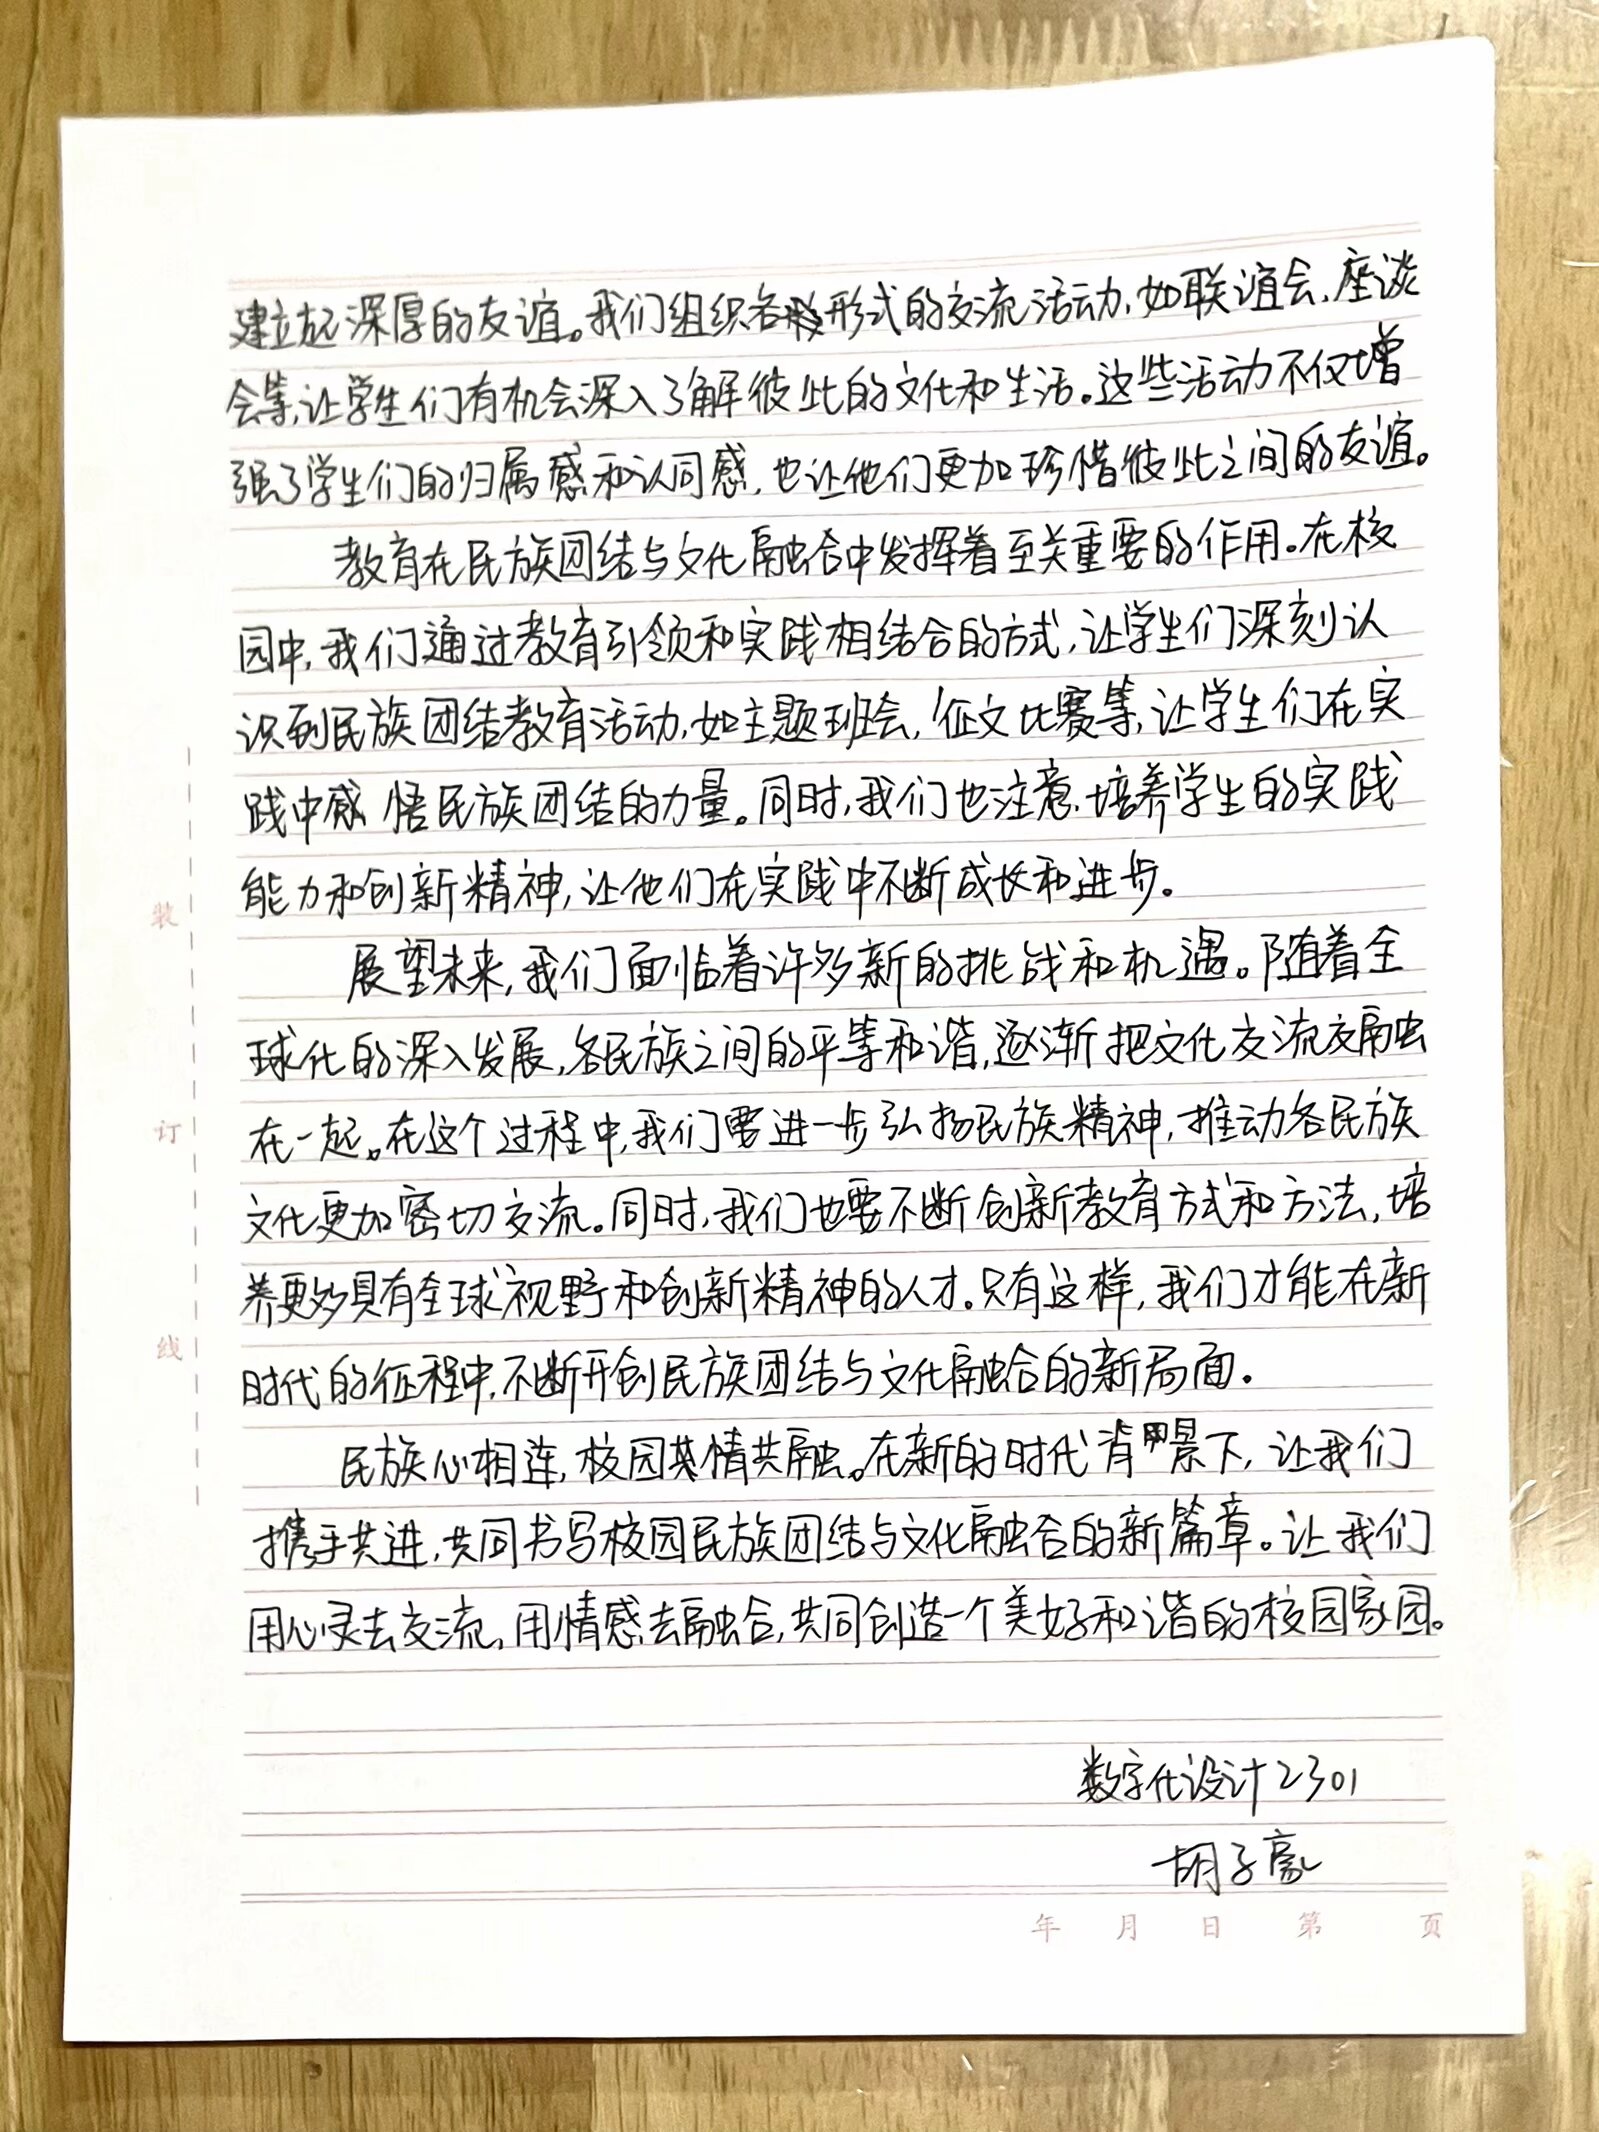 建立起深厚的友谊。我们组织各种形式的交流活动,如联谊会、座谈
会等,让学生们有机会深入了解彼此的文化和生活。这些活动不仅增
强了学生们的归属感和认同感,也让他们更加珍惜彼此之间的友谊。
教育在民族团结与文化融合中发挥着至关重要的作用。在校
园中,我们通过教育引领和实践相结合的方式,让学生们深刻认
识到民族团结教育活动,如主题班会,征文比赛等,让学生们在实
践中感悟民族团结的力量。同时,我们也注意培养学生的实践
能力和创新精神,让他们在实践中不断成长和进步。
展望未来,我们面临着许多新的挑战和机遇。随着全
球化的深入发展,各民族之间的平等和谐,逐渐把文化交流交融
在一起。在这个过程中,我们要进一步弘扬民族精神,推动各民族
文化更加密切交流。同时,我们也要不断创新教育方式和方法,培
养更多具有全球视野和创新精神的人才。只有这样,我们才能在新
时代的征程中,不断开创民族团结与文化融合的新局面.
民族心相连,校园情共融。在新的时代背景下,让我们
携手共进,共同书写校园民族团结与文化融合的新篇章。让我们
用心灵去交流,用情感去融合,共同创造一个美好和谐的校园家园。
数字化设计2301
胡子豪
装
订
线
年 月 日 第 页